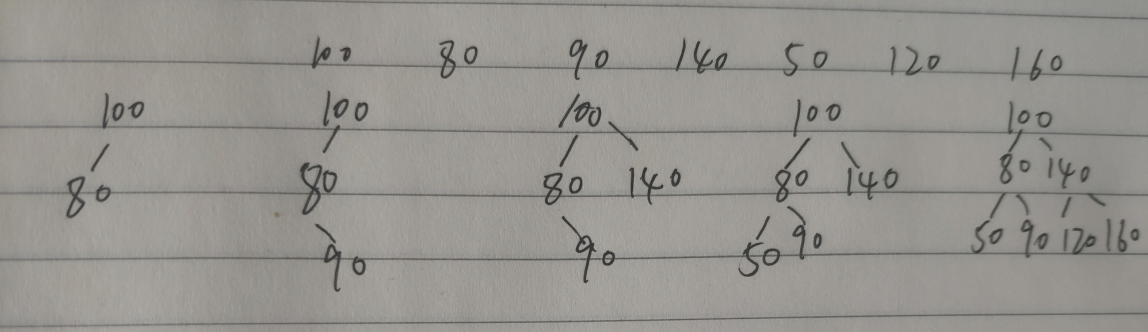 100 80 90 140 50 120 160
100 100 100 100 100
80 80 80 140 80 140 80 140
90 90 50 90 50 90 120 160